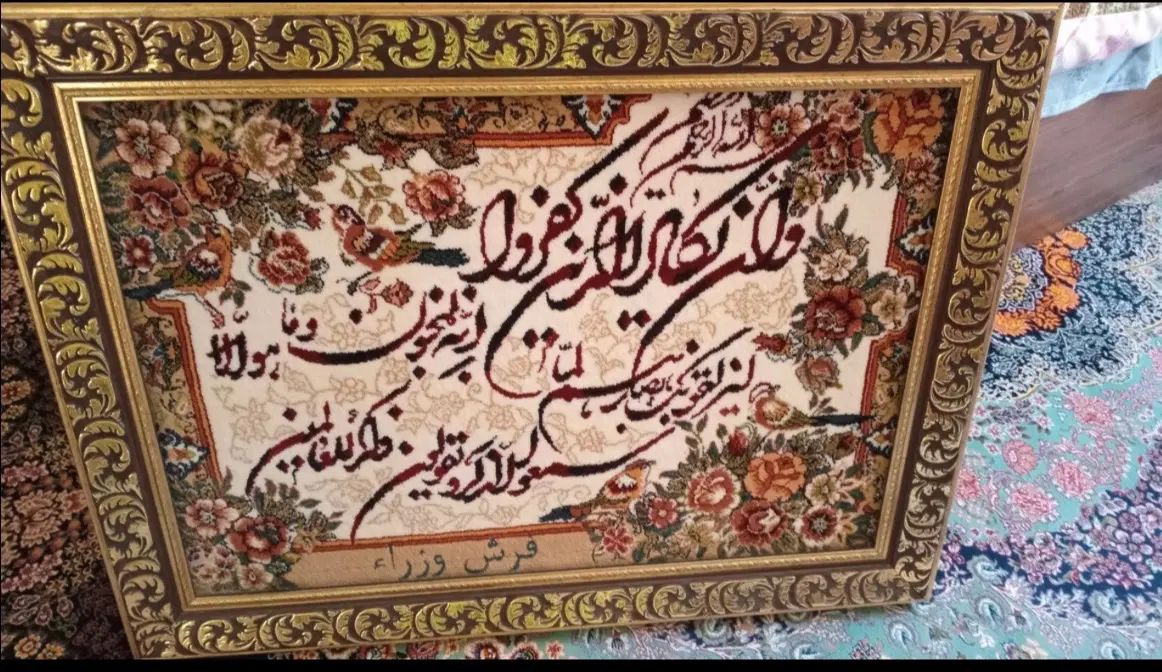 بسم الله الرحمن الرحیم
وان یکاد الذین کفروا
لیزلقونک بابصارهم لما
سمعوا الذکر و یقولون
انه لمجنون وما هو الا
ذکر للعالمین
فرش وزراء